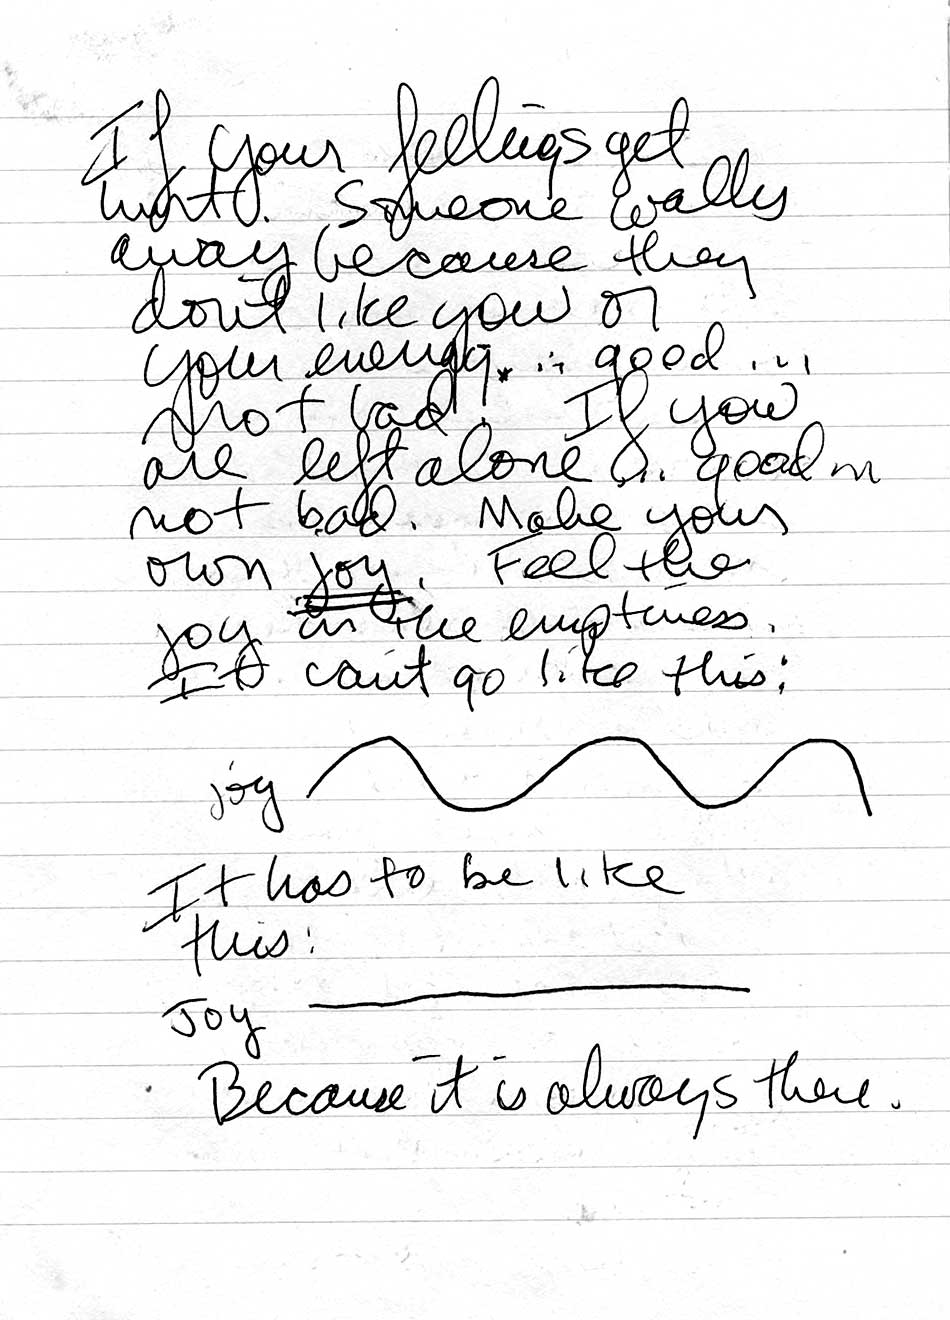 If your feelings get
hurt. Someone walks
away because they
don't like you or
your energy... good...
not bad! If you
are left alone... good...
not bad. Make your
own joy. Feel the
joy in the emptiness.
It can't go like this:
joy
It has to be like
this:
Joy
Because it is always there.